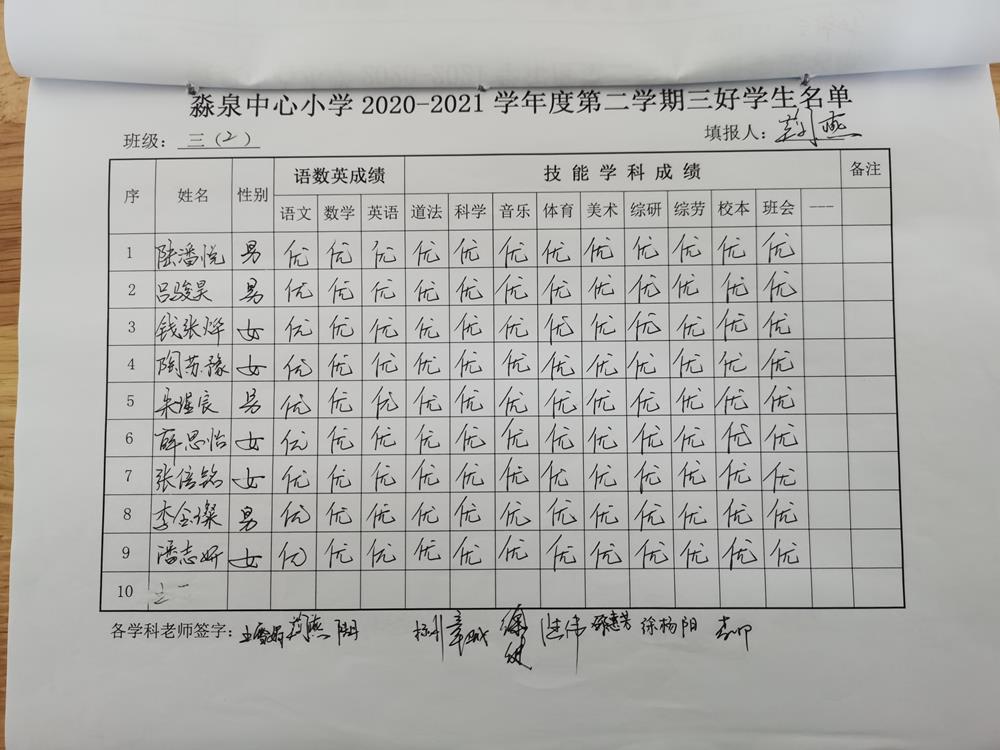 淼泉中心小学 2020-2021 学年度第二学期三好学生名单
班级： 三（2） 填报人：荆燕
序 姓名 性别 语数英成绩 技能学科成绩 备注
语文 数学 英语 道法 科学 音乐 体育 美术 综研 综劳 校本 班会 ---
1 陆潘悦 男 优 优 优 优 优 优 优 优 优 优 优 优
2 吕骏昊 男 优 优 优 优 优 优 优 优 优 优 优 优
3 钱张烨 女 优 优 优 优 优 优 优 优 优 优 优 优
4 陶苏豫 女 优 优 优 优 优 优 优 优 优 优 优 优
5 朱煜宸 男 优 优 优 优 优 优 优 优 优 优 优 优
6 薛思怡 女 优 优 优 优 优 优 优 优 优 优 优 优
7 张倍铭 女 优 优 优 优 优 优 优 优 优 优 优 优
8 李金璨 男 优 优 优 优 优 优 优 优 优 优 优 优
9 潘志妍 女 优 优 优 优 优 优 优 优 优 优 优 优
10
各学科老师签字： 荆燕 徐杨阳